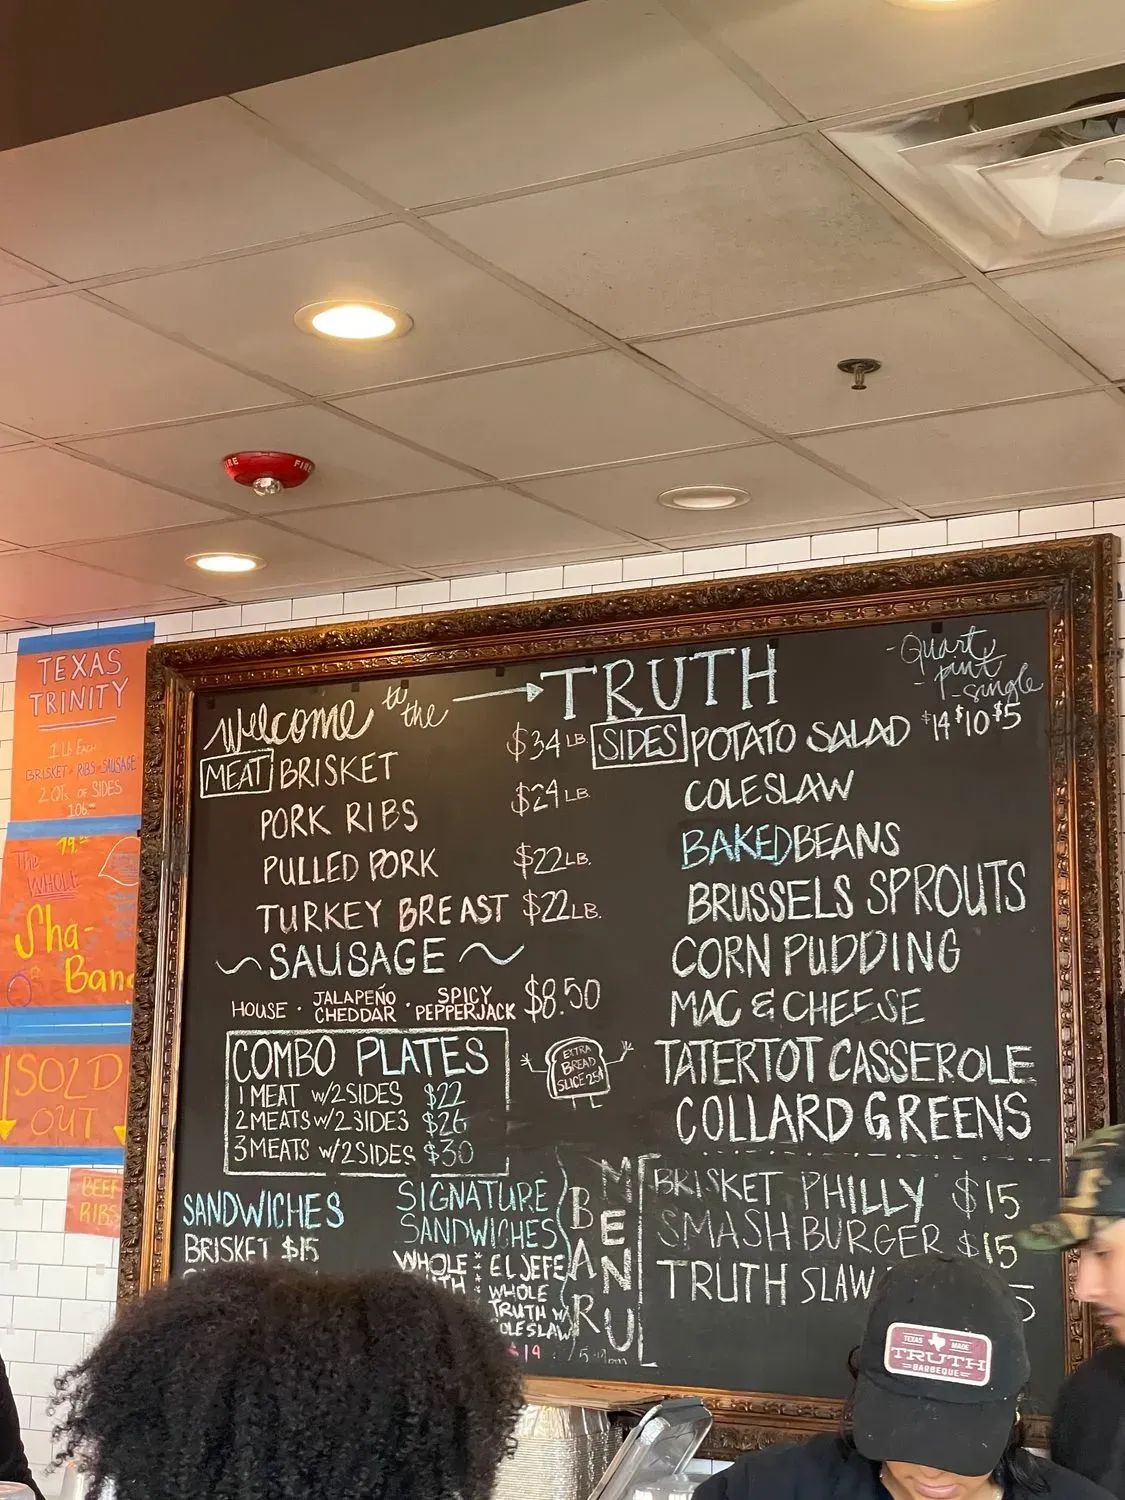 TEXAS
TRINITY
1 Lb EACH
BRISKET · RIBS · SAUSAGE
2 QTs OF SIDES
106.
79.
The
WHOLE
Sha-
Bang
SOLD
OUT
BEEF
RIBS
FIRE
Welcome to the → TRUTH
MEAT BRISKET $34 LB.
PORK RIBS $24 LB.
PULLED PORK $22 LB.
TURKEY BREAST $22 LB.
~ SAUSAGE ~
HOUSE · JALAPEÑO CHEDDAR · SPICY PEPPERJACK $8.50
COMBO PLATES
1 MEAT w/ 2 SIDES $22
2 MEATS w/ 2 SIDES $26
3 MEATS w/ 2 SIDES $30
EXTRA
BREAD
SLICE 25¢
SANDWICHES
BRISKET $15
SIGNATURE
SANDWICHES
WHOLE
EL JEFE
WHOLE
TRUTH W/
$19
BAR
MENU
- Quart
- pint
- single
SIDES POTATO SALAD $14 $10 $5
COLESLAW
BAKED BEANS
BRUSSELS SPROUTS
CORN PUDDING
MAC & CHEESE
TATERTOT CASSEROLE
COLLARD GREENS
BRISKET PHILLY $15
SMASH BURGER $15
TRUTH SLAW
TEXAS MADE
TRUTH
BARBEQUE